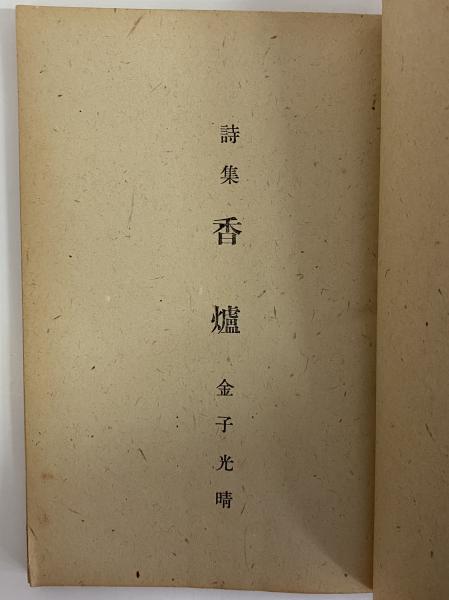 詩集 香爐 金子光晴